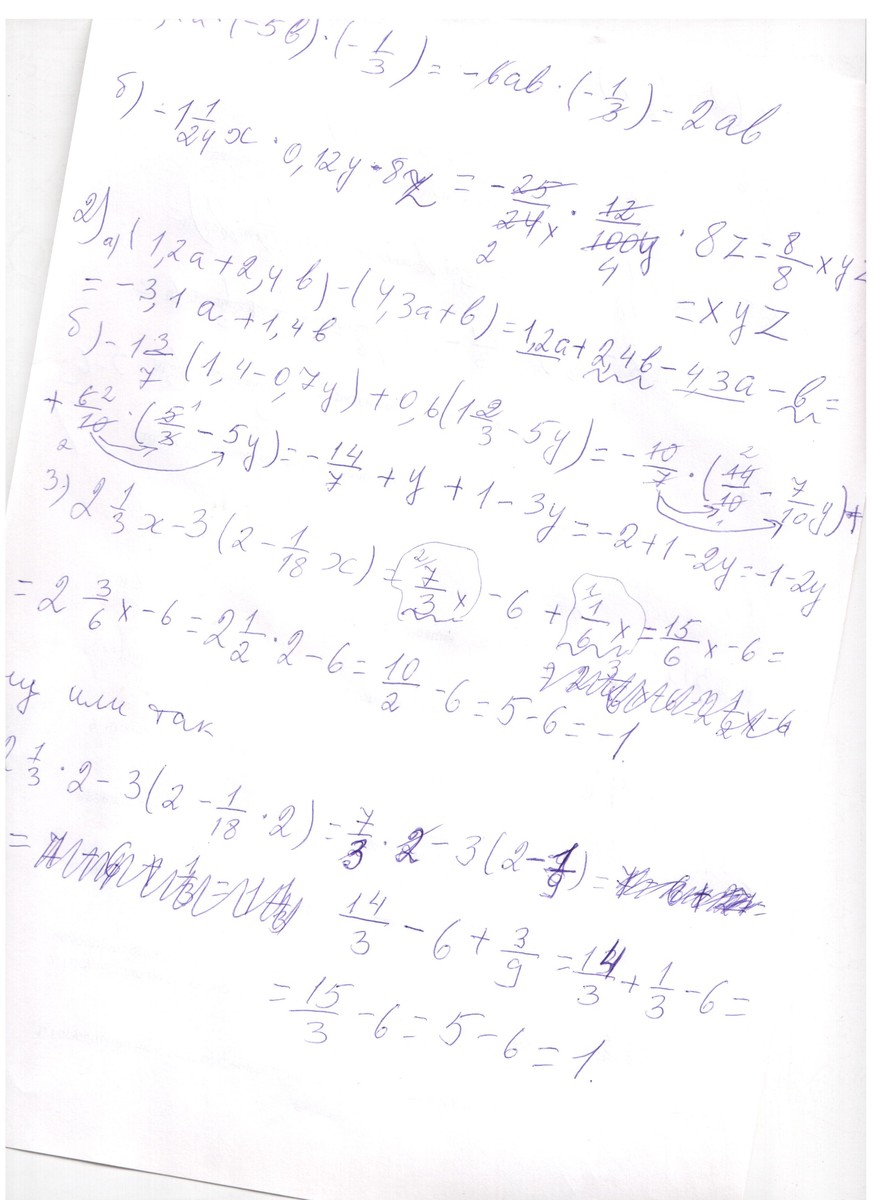 · (-5в) · (-1/3) = -6ав · (-1/3) = 2ав
б) -1 1/24 x · 0,12y · 8z = -25/24 x · 12/100 y · 8z = 8/8 xyz
= xyz
2) а) (1,2а + 2,4в) - (4,3а + в) = 1,2а + 2,4в - 4,3а - в =
= -3,1а + 1,4в
б) -1 3/7 (1,4 - 0,7y) + 0,6(1 2/3 - 5y) = -10/7 · (14/10 - 7/10 y) +
+ 6/10 · (5/3 - 5y) = -14/7 + y + 1 - 3y = -2 + 1 - 2y = -1 - 2y
3) 2 1/3 x - 3(2 - 1/18 x) = 7/3 x - 6 + 1/6 x = 15/6 x - 6 =
= 2 3/6 x - 6 = 2 1/2 · 2 - 6 = 10/2 - 6 = 5 - 6 = -1.
или так
2 1/3 · 2 - 3(2 - 1/18 · 2) = 7/3 · 2 - 3(2 - 1/9) =
=
14/3 - 6 + 3/9 = 14/3 + 1/3 - 6 =
= 15/3 - 6 = 5 - 6 = 1.